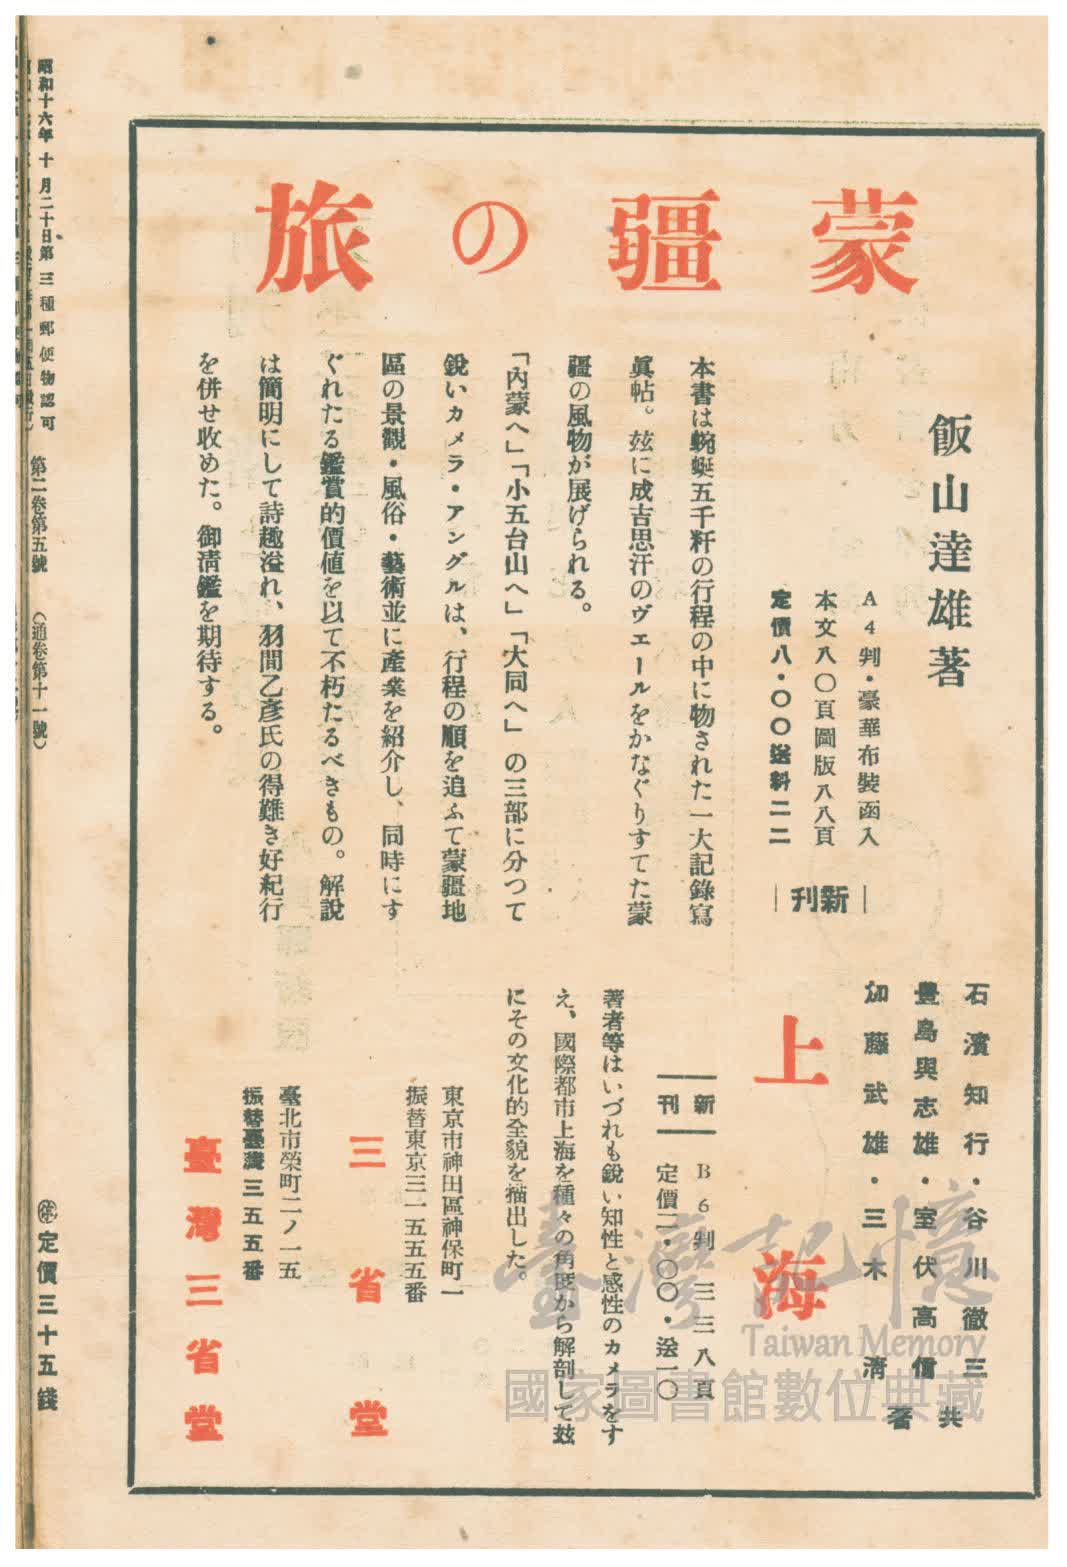 蒙疆の旅
飯山達雄著
A4判・豪華布裝函入
本文八〇頁圖版八八頁
定價八・〇〇送料二二
新刊
本書は蜿蜒五千粁の行程の中に物された一大記錄寫
眞帖。玆に成吉思汗のヴエールをかなぐりすてた蒙
疆の風物が展げられる。
「內蒙へ」「小五台山へ」「大同へ」の三部に分つて
銳いカメラ・アングルは、行程の順を追ふて蒙疆地
區の景觀・風俗・藝術並に產業を紹介し、同時にす
ぐれたる鑑賞的價値を以て不朽たるべきもの。解說
は簡明にして詩趣溢れ、羽間乙彥氏の得難き好紀行
を併せ收めた。御淸鑑を期待する。
石濱知行・谷川徹三
豊島與志雄・室伏高信
加藤武雄・三木淸
共著
上海
新刊
B6判 三三八頁
定價二・〇〇・送一〇
著者等はいづれも銳い知性と感性のカメラをす
え、國際都市上海を種々の角度から解剖して玆
にその文化的全貌を描出した。
東京市神田區神保町一
振替東京三一五五五番
三省堂
臺北市榮町二ノ一五
振替臺灣三五五番
臺灣三省堂
昭和十六年十月二十日第三種郵便物認可
第二卷第五號
(通卷第十一號)
定價三十五錢
臺灣記憶
Taiwan Memory
國家圖書館數位典藏